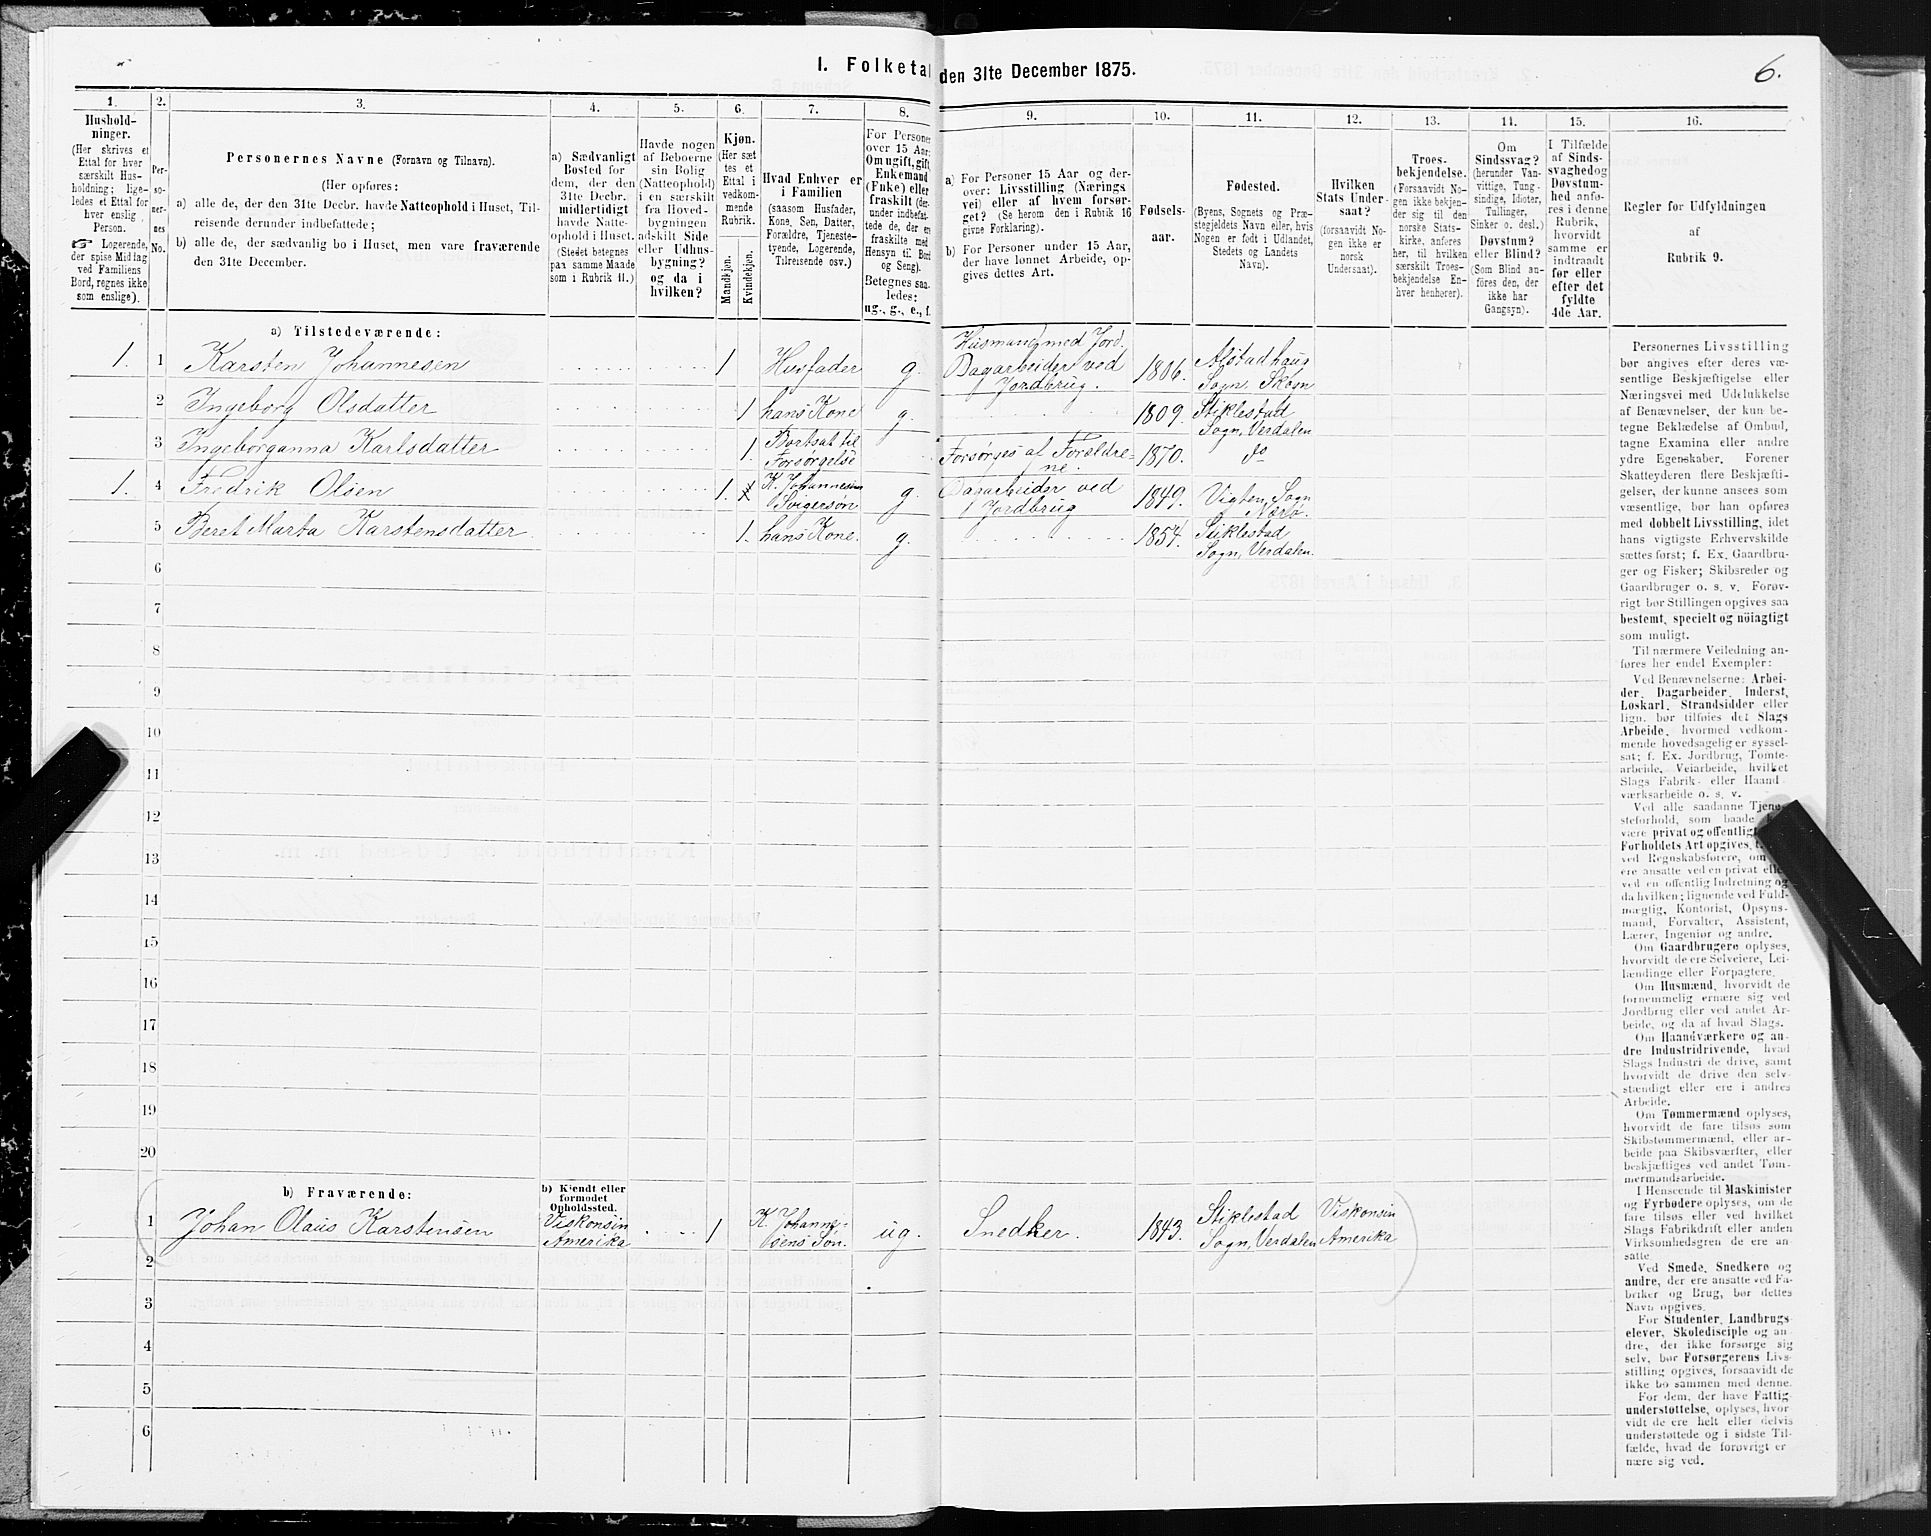 I. Folketal den 31te December 1875.
6.
1.
Hushold-
ninger.
(Her skrives et
Ettal for hver
særskilt Hus-
holdning; lige-
ledes et Ettal for
hver enslig
Person.
☞ Logerende,
der spise Middag
ved Familiens
Bord, regnes ikke
som enslige).
2.
Per-
so-
ner-
nes
No.
3.
Personernes Navne (Fornavn og Tilnavn).
(Her opføres:
a) alle de, der den 31te Decbr. havde Natteophold i Huset, Til-
reisende derunder indbefattede;
b) alle de, der sædvanlig bo i Huset, men vare fraværende
den 31te December.
4.
a) Sædvanligt
Bosted for
dem, der den
31te Decbr.
midlertidigt
havde Natte-
ophold i Huset.
(Stedet betegnes
paa samme Maade
som i Rubrik 11.)
5.
Havde nogen
af Beboerne
sin Bolig
(Natteophold)
i en særskilt
fra Hoved-
bygningen
adskilt Side
eller Udhus-
bygning?
og da i
hvilken?
6.
Kjøn.
(Her sæt
tes et
Ettal i
vedkom-
mende
Rubrik.
Mandkjøn.
Kvindekjøn.
7.
Hvad Enhver er
i Familien
(saasom Husfader,
Kone, Søn, Datter,
Forældre, Tjeneste-
tyende, Logerende,
Tilreisende osv.)
8.
For Personer
over 15 Aar:
Om ugift, gift,
Enkemand
(Enke) eller
fraskilt (der-
under indbefat-
tede de, der er
fraskilte med
Hensyn til Bord
og Seng).
Betegnes saa-
ledes:
ug., g., e., f.
9.
a) For Personer 15 Aar og der-
over: Livsstilling (Nærings
vei) eller af hvem forsør-
get? (Se herom den i Rubrik 16
givne Forklaring).
b) For Personer under 15 Aar,
der have lønnet Arbeide, op-
gives dettes Art.
10.
Fødsels-
aar.
11.
Fødested.
(Byens, Sognets og Præ-
stegjeldets Navn eller, hvis
Nogen er født i Udlandet,
Stedets og Landets
Navn).
12.
Hvilken
Stats Under-
saat?
(forsaavidt No-
gen ikke er
norsk
Undersaat).
13.
Troes-
bekjendelse.
(Forsaavidt No-
gen ikke bekjen-
der sig til den
norske Stats-
kirke, anføres
her, til hvilken
særskilt Troes-
bekjendelse En-
hver henhører).
14.
Om
Sindssvag?
(herunder Van-
vittige, Tung-
sindige, Idioter,
Tullinger,
Sinker o. desl.)
Døvstum?
eller Blind?
(Som Blind an-
føres den, der
ikke har
Gangsyn).
15.
I Tilfælde
af Sinds-
svaghed og
Døvstum-
hed anfø-
res i denne
Rubrik,
hvorvidt
samme er
indtraadt
før eller
efter det
fyldte
4de Aar.
16.
Regler for Udfyldningen
af
Rubrik 9.
a) Tilstedeværende:
1. 1 Karsten Johannesen 1 Husfader g. Husmand med Jord. Dagarbeider ved Jordbrug. 1806. Alstadhaug Sogn, Skogn
2 Ingeborg Olsdatter 1 hans Kone g. 1809. Stiklestad Sogn, Verdalen
3 Ingeborganna Karlsdatter 1. Bortsat til Forsørgelse Forsørges af Forældre-ne. 1870. do
1. 4 Fredrik Olsen 1. K. Johannesens Svigersøn g. Dagarbeider ved Jordbrug 1849. Vigten, Sogn Nærø.
5 Beret Marta Karstensdatter. 1. hans Kone. g. 1854. Stiklestad Sogn, Verdalen.
6
7
8
9
10
11
12
13
14
15
16
17
18
19
20
b) Fraværende:
b) Kjendt eller
formodet
Opholdssted.
1 Johan Olaus Karstensen Viskonsin Amerika 1 K. Johanne-sens Søn. ug. Snedker. 1843. Stiklestad Sogn, Verdalen Viskonsin Amerika
2
3
4
5
6
Personernes Livsstilling
bør angives efter deres væ-
sentlige Beskjæftigelse eller
Næringsvei med Udelukkelse
af Benævnelser, der kun be-
tegne Beklædelse af Ombud,
tagne Examina eller andre
ydre Egenskaber. Forener
Skatteyderen flere Beskjæfti-
gelser, der kunne ansees som
væsentlige, bør han opføres
med dobbelt Livsstilling, idet
hans vigtigste Erhvervskilde
sættes først; f. Ex. Gaardbru-
ger og Fisker; Skibsreder og
Gaardbruger o. s. v. Forøv-
rigt bør Stillingen opgives saa
bestemt, specielt og nöiagtigt
som muligt.
Til nærmere Veiledning an-
føres her endel Exempler:
Ved Benævnelserne: Arbei-
der, Dagarbeider, Inderst,
Løskarl, Strandsidder eller
lign. bør tilføies det Slags
Arbeide, hvormed vedkom-
mende hovedsagelig er syssel-
sat; f. Ex. Jordbrug, Tomte-
arbeide, Veiarbeide, hvilket
Slags Fabrik- eller Haand-
værksarbeide o. s. v.
Ved alle saadanne Tjene-
steforhold, som baade
være privat og offentligt
Forholdets Art opgives,
ved Regnskabsførere, om
ere ansatte ved en privat eller
ved en offentlig Indretning og
da hvilken; lignende ved Fuld-
mægtig, Kontorist, Opsyns-
mand, Forvalter, Assistent,
Lærer, Ingeniør og andre.
Om Gaardbrugere oplyses,
hvorvidt de ere Selveiere, Lei-
lændinge eller Forpagtere.
Om Husmænd, hvorvidt de
fornemmelig ernære sig ved
Jordbrug eller ved andet Ar-
beide, og da af hvad Slags.
Om Haandværkere og an-
dre Industridrivende, hvad
Slags Industri de drive, samt
hvorvidt de drive den selv-
stændigt eller ere i andres
Arbeide.
Om Tømmermænd oplyses,
hvorvidt de fare tilsøs som
Skibstømmermænd, eller ar-
beide paa Skibsværfter, eller
beskjæftiges ved andet Tøm-
mermandsarbeide.
I Henseende til Maskinister
og Fyrbødere oplyses, om de
fare tilsøs eller ved hvilket
Slags Fabrikdrift eller anden
Virksomhedsgren de ere an-
satte
Ved Smede, Snedkere og
andre, der ere ansatte ved Fa-
briker og Brug, bør dettes
Navn opgives.
For Studenter, Landbrugs-
elever, Skoledisciple og an-
dre, der ikke forsørge sig
selv, bør Forsørgerens Livs-
stilling opgives, forsaavidt de
ikke bo sammen med denne.
For dem, der have Fattig-
understøttelse, oplyses, hvor-
vidt de ere helt eller delvis
understøttede og i sidste Til-
fælde, hvad de forøvrigt er
nære sig ved.